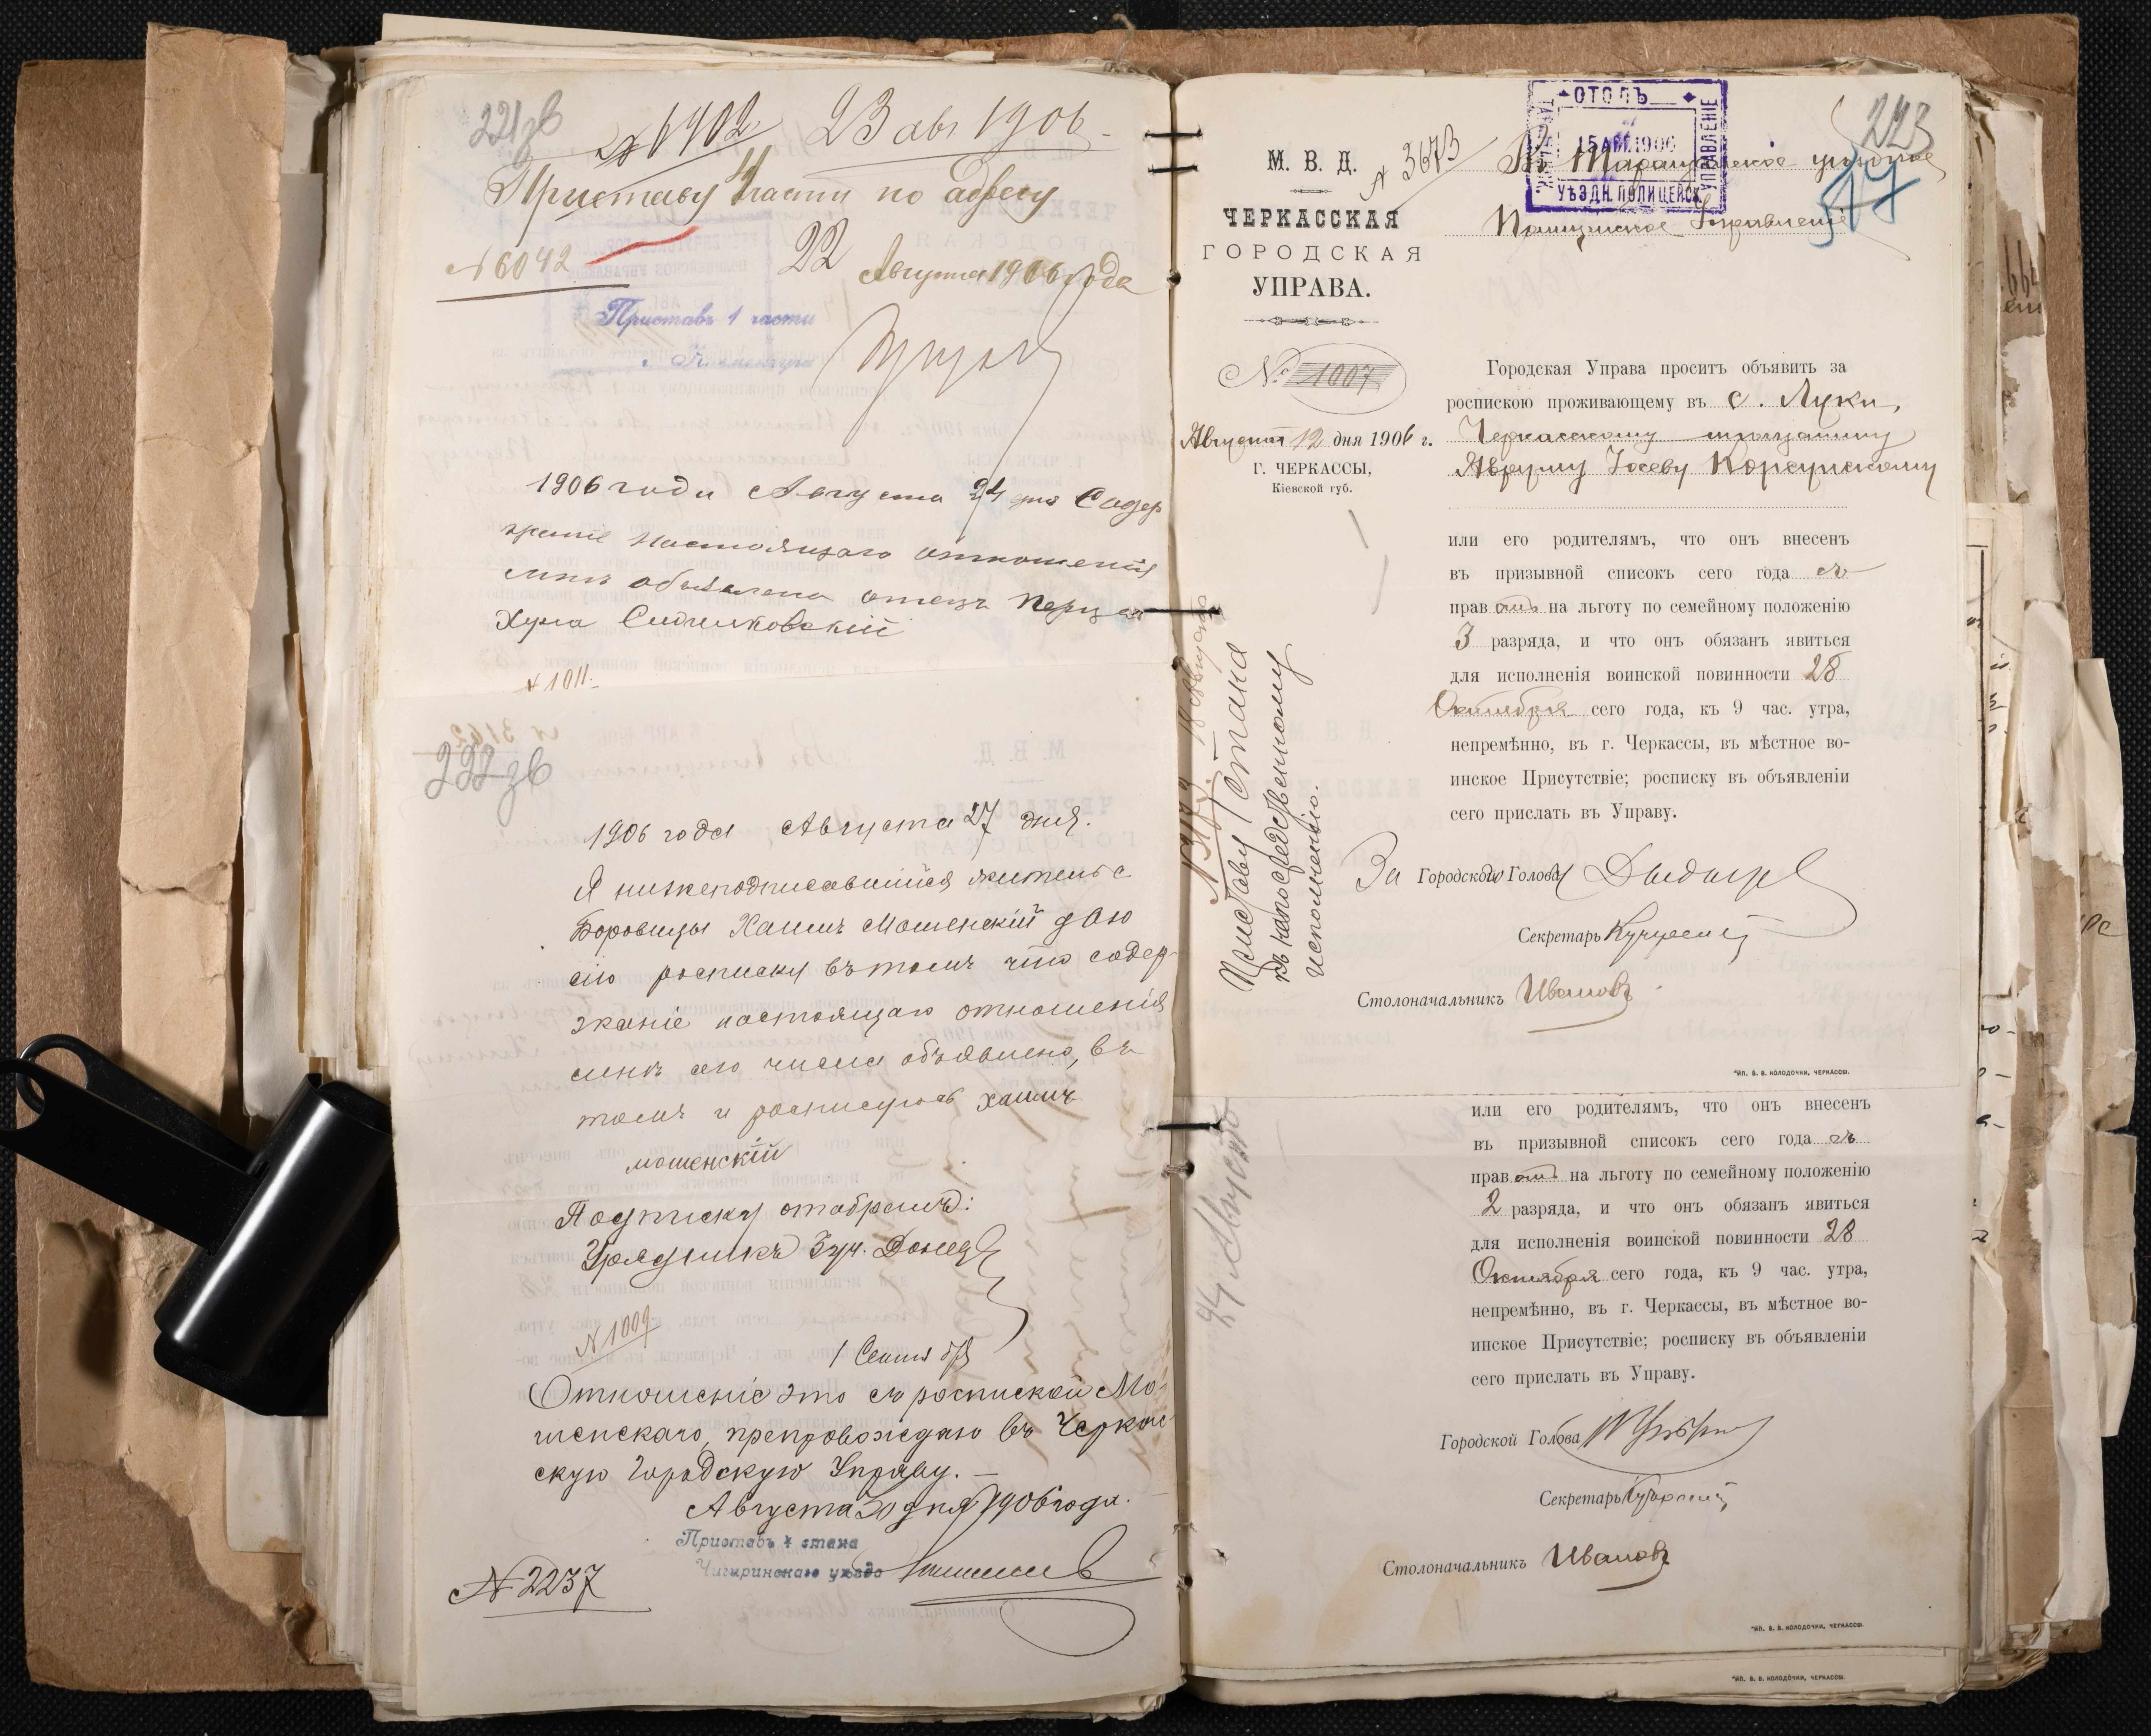 221зв
№ 6402 23 авг 1906
Приставу 4 части по адресу
№ 6042 22 Августа 1906 года
Приставъ 1 части
1906 года Августа 24 дня Содер
жание Настоящаго отношения
мнѣ объявлено отецъ
Сидилковский
№ 1011.
222зв
1906 года Августа 27 дня.
Я нижеподписавшийся житель с
Боровицы Хаимъ Мошенскій даю
сію росписку въ томъ что содер-
жаніе настоящаго отношенія
мнѣ сего числа объявлено, въ
томъ и росписуюсь Хаимъ
мошенскій
Подписку отобралъ:
Урядникъ 3 уч.
№ 1009
1 Сентяб
Отношеніе это съ роспиской Мо-
шенскаго, препровождаю въ Черкас
скую Городскую Управу. –
Августа 30 дня 1906 года.
Приставъ 4 стана
Чигиринскаго уѣзда
№ 2237
223
ОТОЛЪ
15 АВГ 1906
УѢЗДН. ПОЛИЦЕЙСК.
УПРАВЛЕНІЕ
М. В. Д. № 3673 Въ Таращанское уѣздное
Полицейское Управленіе
57
ЧЕРКАССКАЯ
ГОРОДСКАЯ
УПРАВА.
№ 1007
Августа 12 дня 1906 г.
Г. ЧЕРКАССЫ,
Кіевской губ.
Городская Управа проситъ объявить за
роспискою проживающему въ с. Луки,
Черкасскому мѣщанину
Авруму Іосеву Корсунскому
или его родителямъ, что онъ внесенъ
въ призывной списокъ сего года съ
правомъ на льготу по семейному положенію
3 разряда, и что онъ обязанъ явиться
для исполненія воинской повинности 28
Октября сего года, къ 9 час. утра,
непремѣнно, въ г. Черкассы, въ мѣстное во-
инское Присутствіе; росписку въ объявленіи
сего прислать въ Управу.
За Городского Голову
Секретарь
Столоначальникъ Ивановъ
Приставу 1 стана
къ непосредственному
исполненію.
18 Августа
24 Августа
ТИП. В. В. КОЛОДОЧКИ, ЧЕРКАССЫ.
или его родителямъ, что онъ внесенъ
въ призывной списокъ сего года съ
правомъ на льготу по семейному положенію
2 разряда, и что онъ обязанъ явиться
для исполненія воинской повинности 28
Октября сего года, къ 9 час. утра,
непремѣнно, въ г. Черкассы, въ мѣстное во-
инское Присутствіе; росписку въ объявленіи
сего прислать въ Управу.
Городской Голова
Секретарь
Столоначальникъ Ивановъ
ТИП. В. В. КОЛОДОЧКИ, ЧЕРКАССЫ.
ТИП. В. В. КОЛОДОЧКИ, ЧЕРКАССЫ.